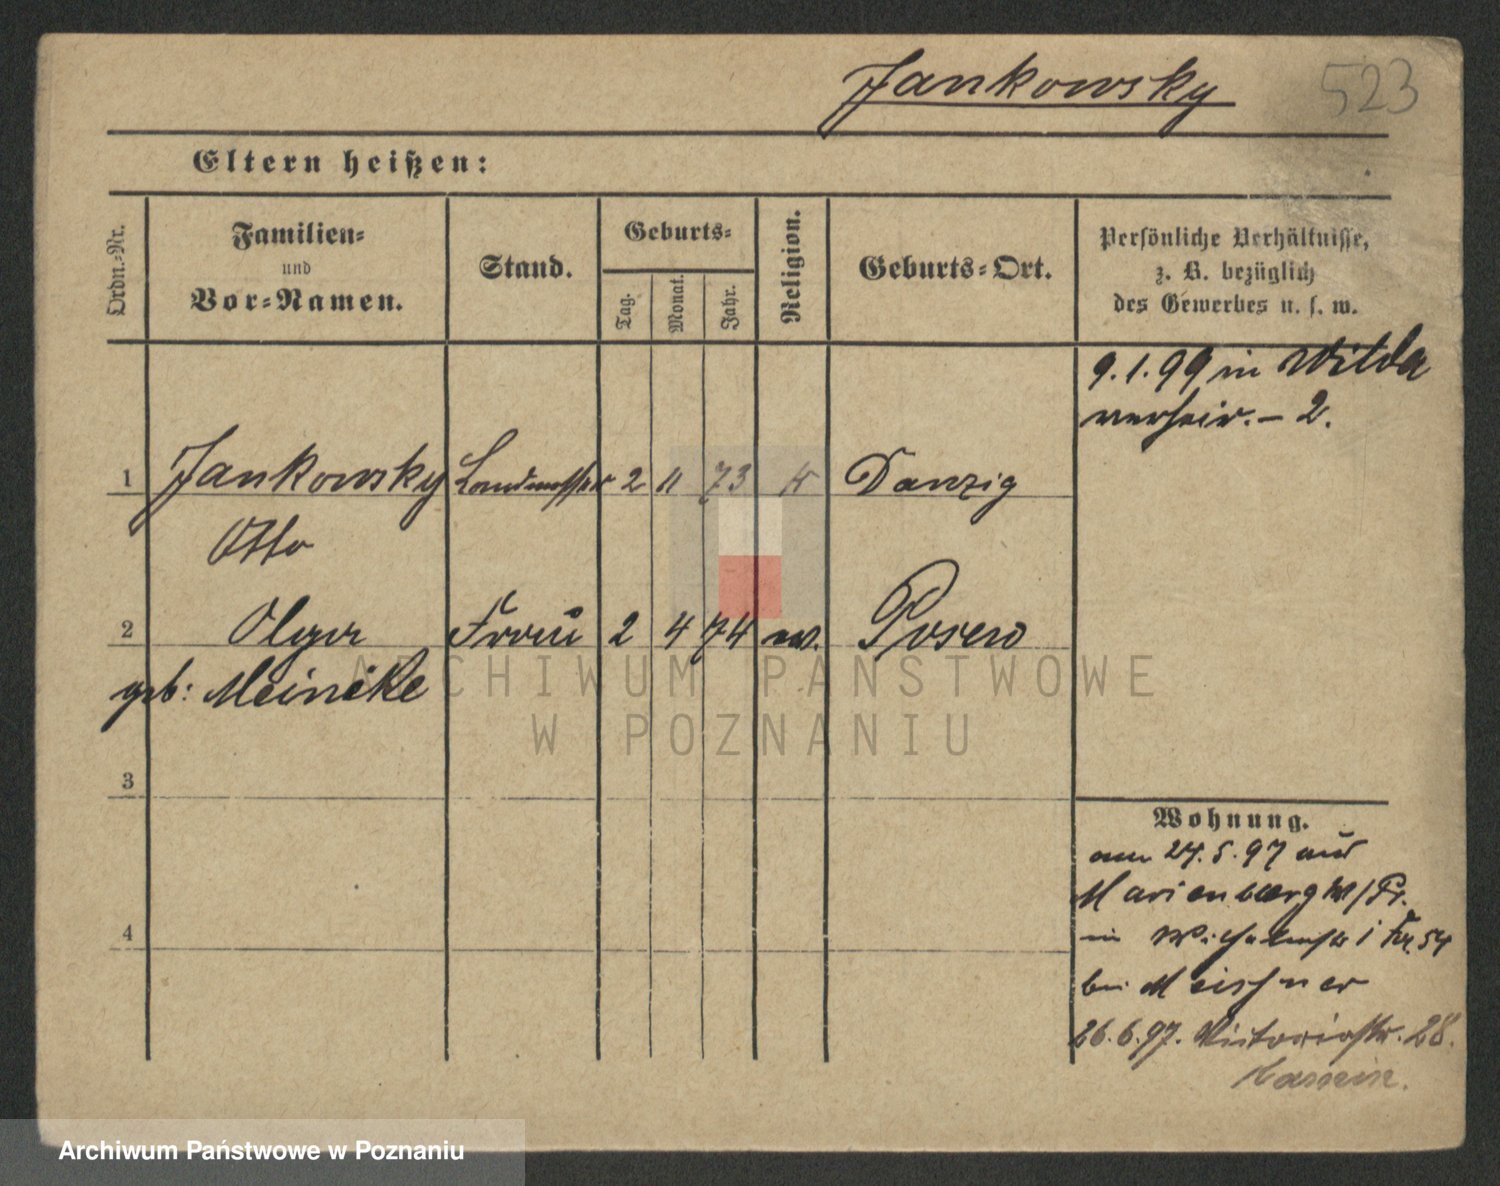 Jankowsky 523
Eltern heißen:
Ordn.-Nr.
Familien-
und
Vor-Namen.
Stand.
Geburts-
Tag.
Monat.
Jahr.
Religion.
Geburts-Ort.
Persönliche Verhältnisse,
z. B. bezüglich
des Gewerbes u. s. w.
9.1.99 in Wilda
verheir. – 2.
1 Jankowsky Landmesser 2 11 73 k Danzig
Otto
2 Olga Frau 2 4 74 ev. Posen
geb: Meineke
3
4
Wohnung.
am 24.5.97 aus
Marienburg W/Pr.
in
bei Meischner
26.6.97. Victoriastr. 28.
ARCHIWUM PAŃSTWOWE
W POZNANIU
Archiwum Państwowe w Poznaniu